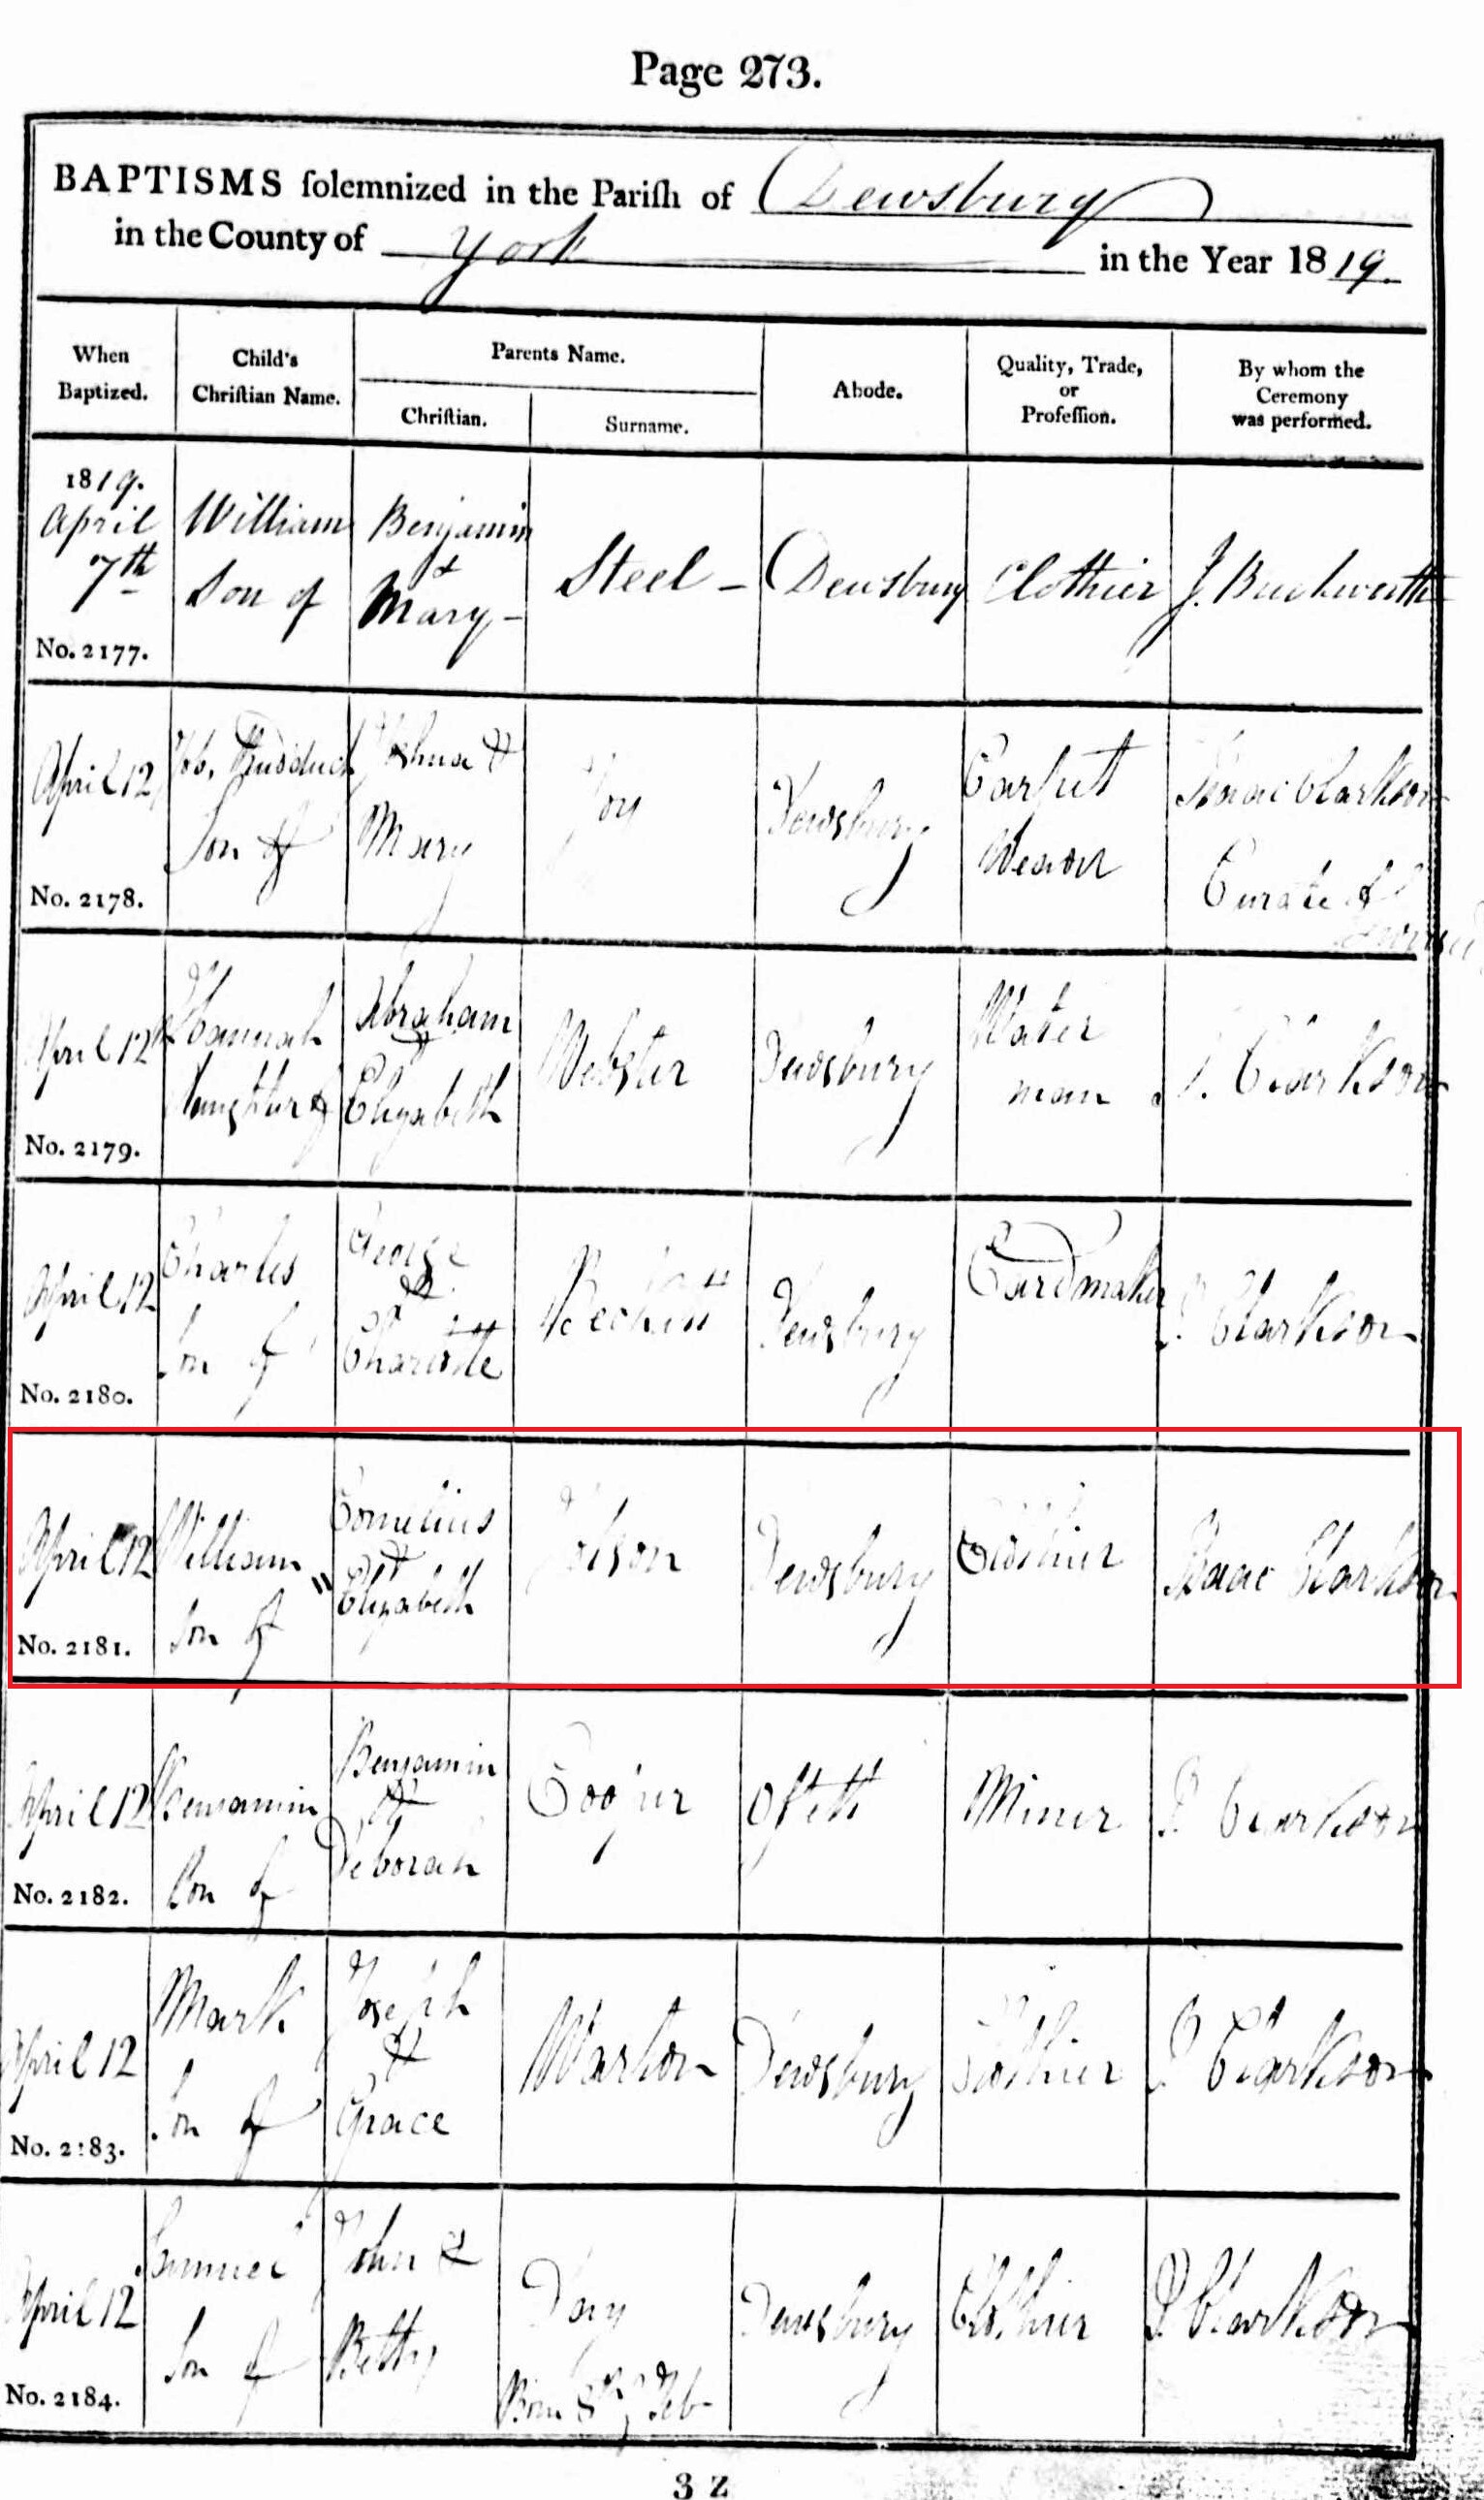 Page 273.
BAPTISMS solemnized in the Parish of Dewsbury
in the County of York in the Year 1819.
When Baptized.
Child's Christian Name.
Parents Name.
Christian.
Surname.
Abode.
Quality, Trade, or Profession.
By whom the Ceremony was performed.
1819.
April 7th
No. 2177.
William Son of
Benjamin & Mary
Steel
Dewsbury
Clothier
J. Buckworth
April 12
No. 2178.
Son of
Joshua & Mary
Dewsbury
Carpet
Isaac Clarkson
Curate of
April 12
No. 2179.
Hannah daughter of
Abraham & Elizabeth
Webster
Dewsbury
Water man
I. Clarkson
April 12
No. 2180.
Charles Son of
George & Charlotte
Dewsbury
Cardmaker
I. Clarkson
April 12
No. 2181.
William Son of
Cornelius & Elizabeth
Dewsbury
Clothier
Isaac Clarkson
April 12
No. 2182.
Benjamin Son of
Benjamin & Deborah
Cooper
Miner
I. Clarkson
April 12
No. 2183.
Mark Son of
Joseph & Grace
Dewsbury
Clothier
I. Clarkson
April 12
No. 2184.
Samuel Son of
John & Betty
Born 8th Feb
Dewsbury
Clothier
I. Clarkson
3 Z